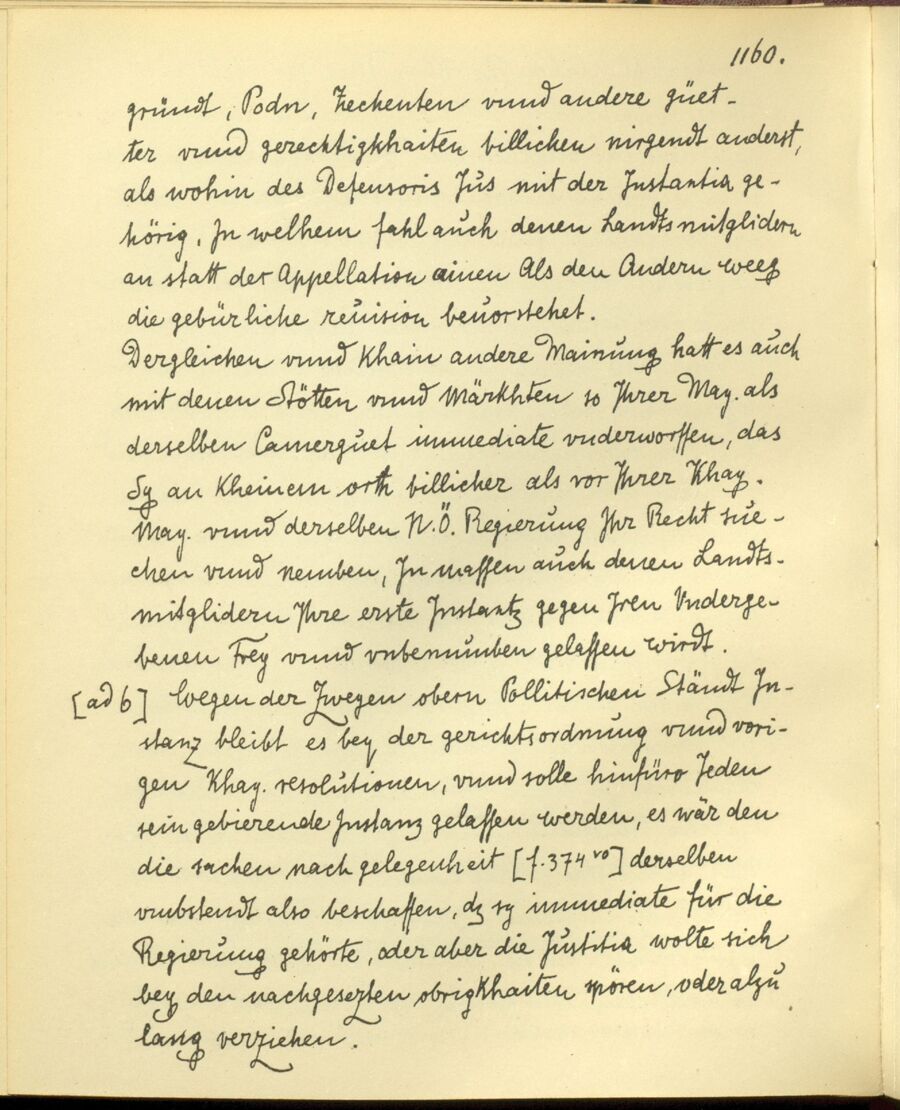 1160.
gründt, Podn, Zechenten vnnd andere güet-
ter vnnd gerechtigkhaiten billichen nirgendt anderst,
als wohin des Defensoris Jus mit der Instantia ge-
hörig. In welhem fahl auch denen Landtsmitglidern
an statt der Appellation ainen Als den Andern weeg
die gebürliche reuision beuorstehet.
Dergleichen vnnd Khain andere Mainung hatt es auch
mit denen Stötten vnnd Märkhten so Ihrer May. als
derselben Camerguet immediate vnderworffen, das
Sy an Kheinem orth billicher als vor Ihrer Khay.
May. vnnd derselben N.Ö. Regierung Ihr Recht sue-
chen vnnd nemben, In massen auch denen Landts-
mitglidern Ihre erste Instantz gegen Iren Vnderge-
benen Frey vnnd vnbenumben gelassen wirdt.
[ad 6] Wegen der Zweyen obern Pollitischen Ständt In-
stanz bleibt es bey der gerichtsordnung vnnd vori-
gen Khay. resolutionen, vnnd solle hinfüro Jeden
sein gebierende Instanz gelassen werden, es wär den
die sachen nach gelegenheit [f. 374 vo] derselben
vmbstendt also beschaffen, dz sy immediate für die
Regierung gehörte, oder aber die Justitia wolte sich
bey den nachgesezten obrigKhaiten spören, oder alzu
lang verziehen.